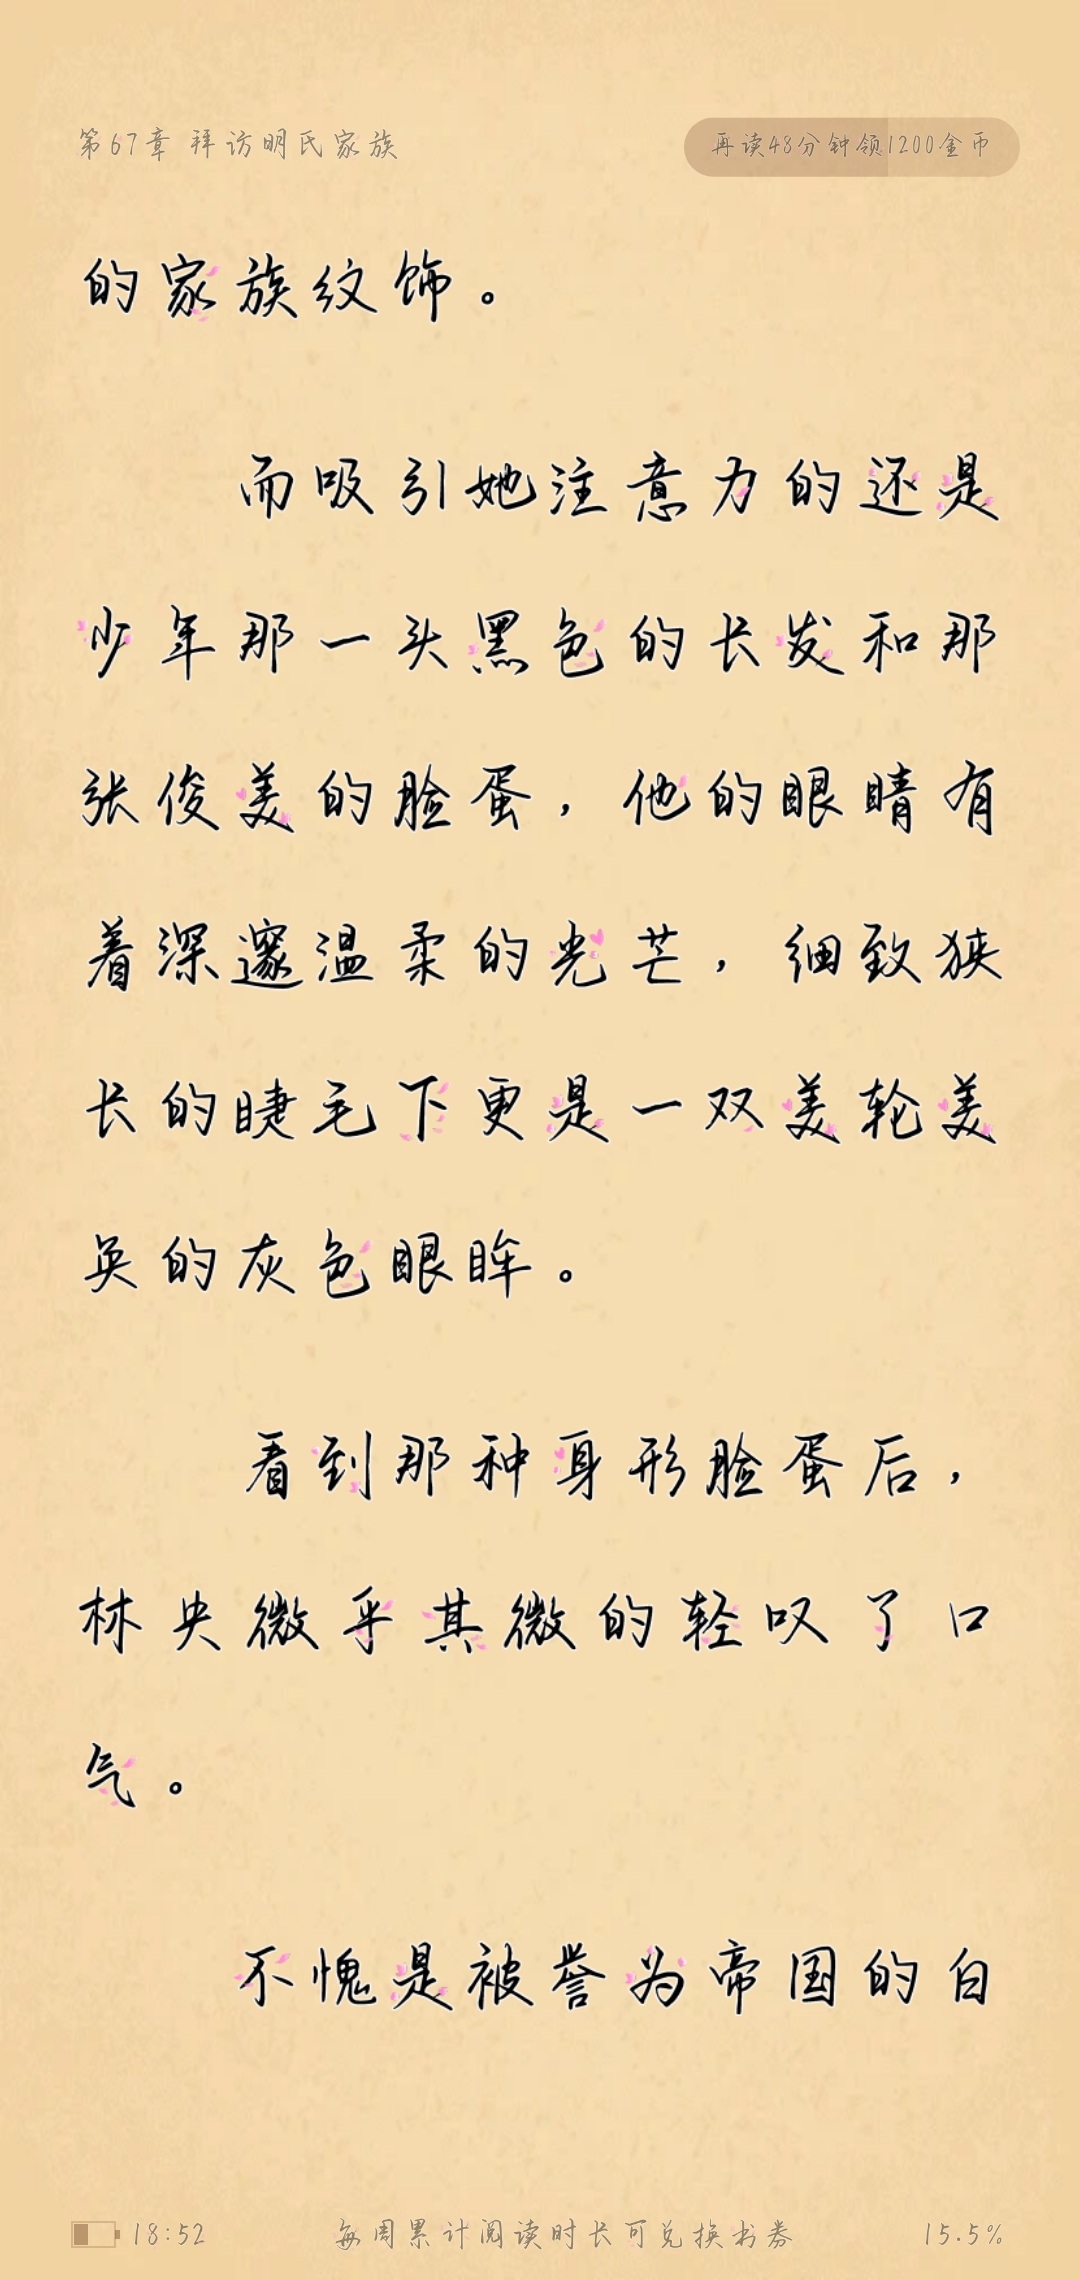 第67章 拜访明氏家族
再读48分钟领1200金币
的家族纹饰。
而吸引她注意力的还是
少年那一头黑色的长发和那
张俊美的脸蛋，他的眼睛有
着深邃温柔的光芒，细致狭
长的睫毛下更是一双美轮美
奂的灰色眼眸。
看到那种身形脸蛋后，
林央微乎其微的轻叹了口
气。
不愧是被誉为帝国的白
18:52
每周累计阅读时长可兑换书券
15.5%